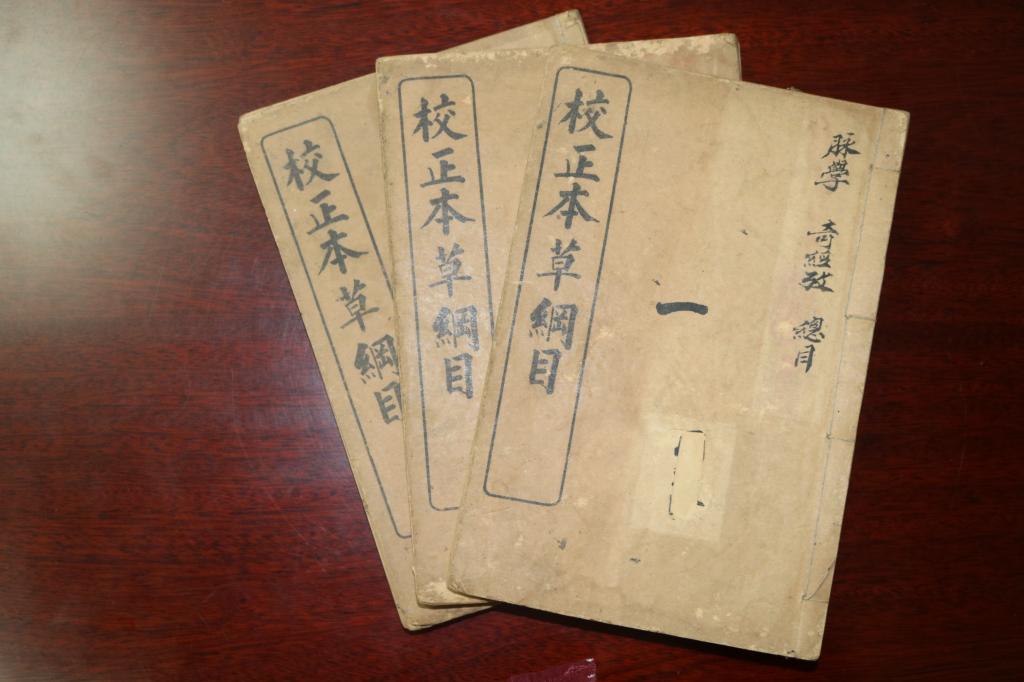 脉學
奇經攷
總目
一
校正本草綱目
校正本草綱目
校正本草綱目